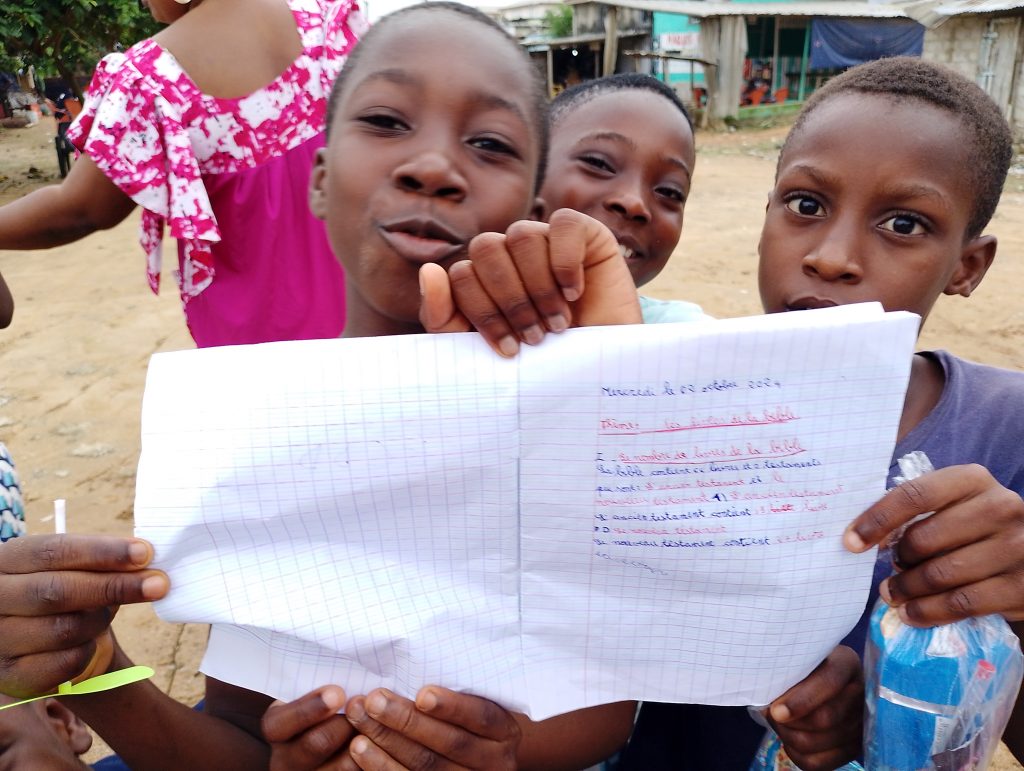 Mercredi le 02 octobre 2024
Thème: les livres de la bible
I Le nombre de livres de la bible
La bible contient livres et 2 testaments
qui sont: l'ancien testament et le
nouveau testament 1) l'ancien testament
L'ancien testament contient: livre
Le nouveau testament
Le nouveau testament contient livre